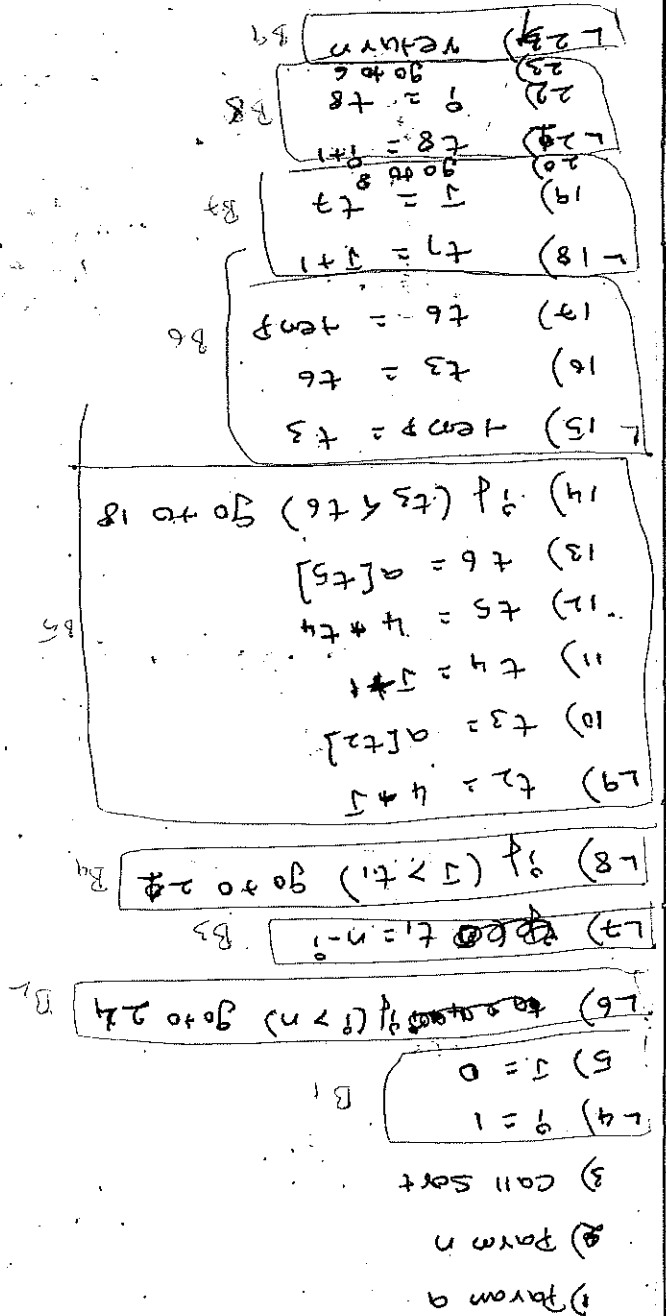 1) Param a
2) Param n
3) Call Sort
L4) i = 1
5) J = 0
B1
L6) if (i > n) goto 24
B2
L7) t1 = n-i
B3
L8) if (J > t1) goto 21
B4
L9) t2 = 4 * J
10) t3 = a[t2]
11) t4 = J+1
12) t5 = 4 * t4
13) t6 = a[t5]
14) if (t3 < t6) goto 18
B5
L15) temp = t3
16) t3 = t6
17) t6 = temp
B6
L18) t7 = J+1
19) J = t7
20) goto 8
B7
L21) t8 = i+1
22) i = t8
23) goto 6
B8
L24) return
B9